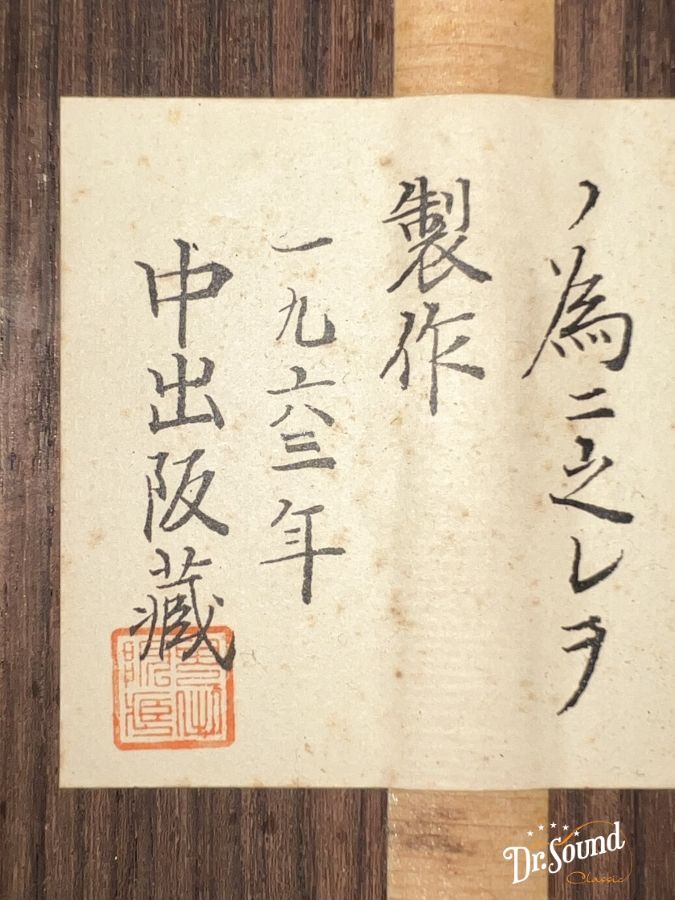 ノ為ニ之レヲ
製作
一九六三年
中出阪藏
Dr.Sound
Classic